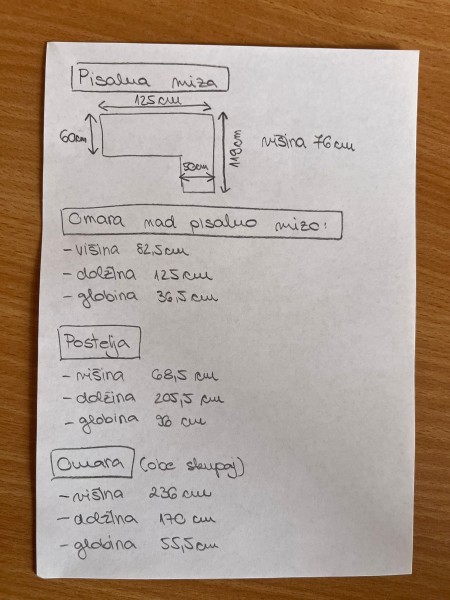 Pisalna miza
125cm
60cm
50cm
118cm
višina 76cm
Omara nad pisalno mizo:
- višina 82,5cm
- dolžina 125cm
- globina 36,5cm
Postelja
- višina 68,5 cm
- dolžina 205,5 cm
- globina 96 cm
Omara (obe skupaj)
- višina 236cm
- dolžina 170 cm
- globina 55,5cm